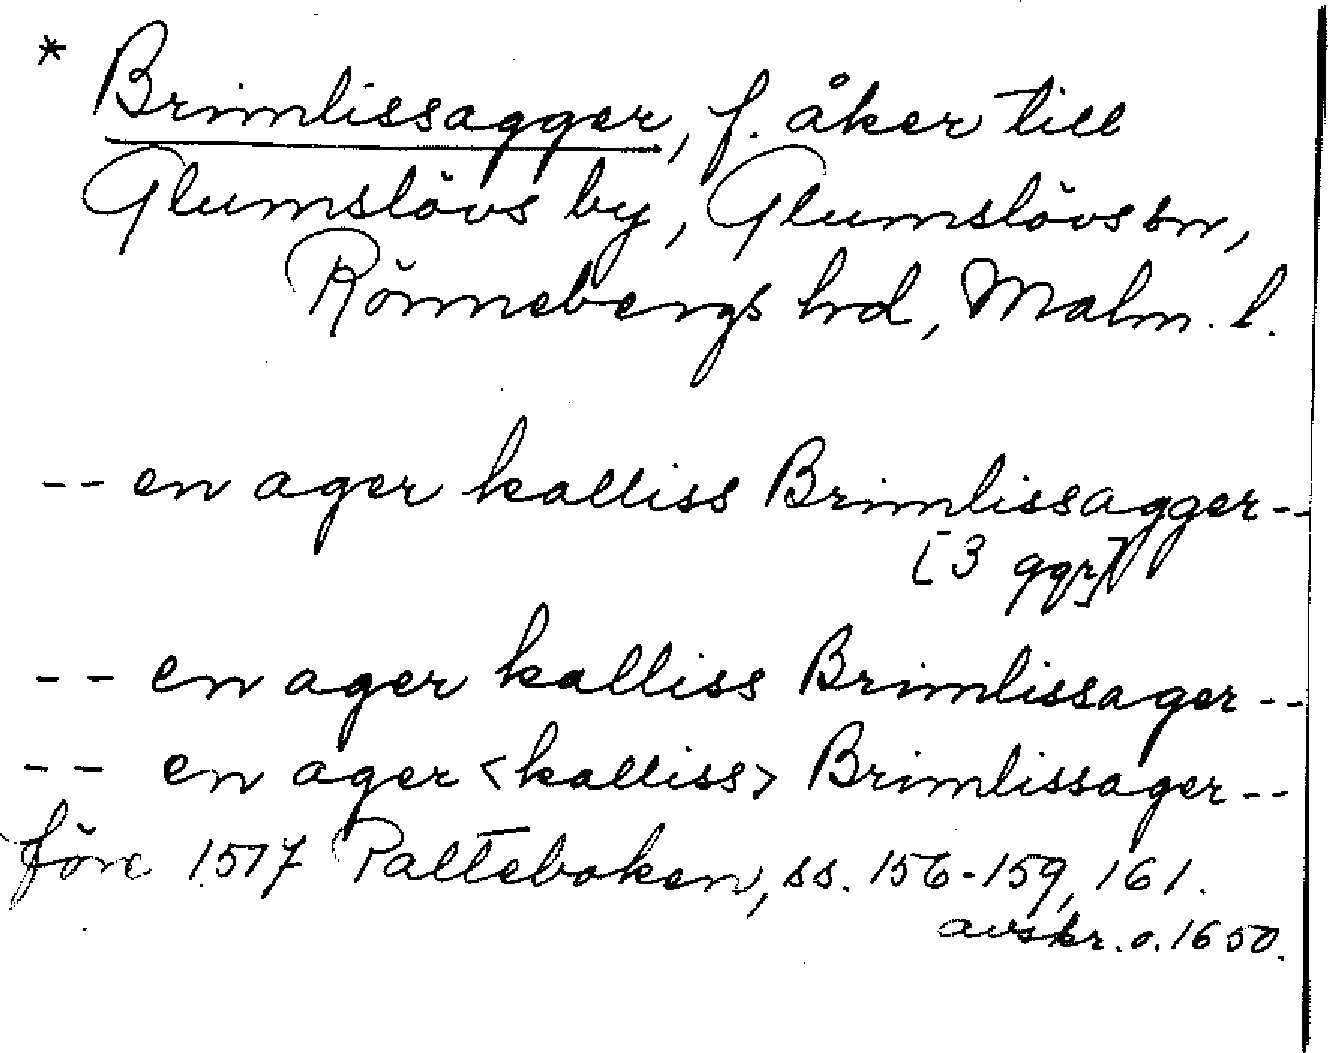 * Brimlissagger, f. åker till
Glumslövs by, Glumslövs sn,
Rönnebergs hrd, Malm. l.
-- en ager kalliss Brimlissagger --
[3 ggr]
-- en ager kalliss Brimlissager --
-- en ager <kalliss> Brimlissager --
före 1517 Palteboken, ss. 156-159, 161.
avskr. o. 1650.